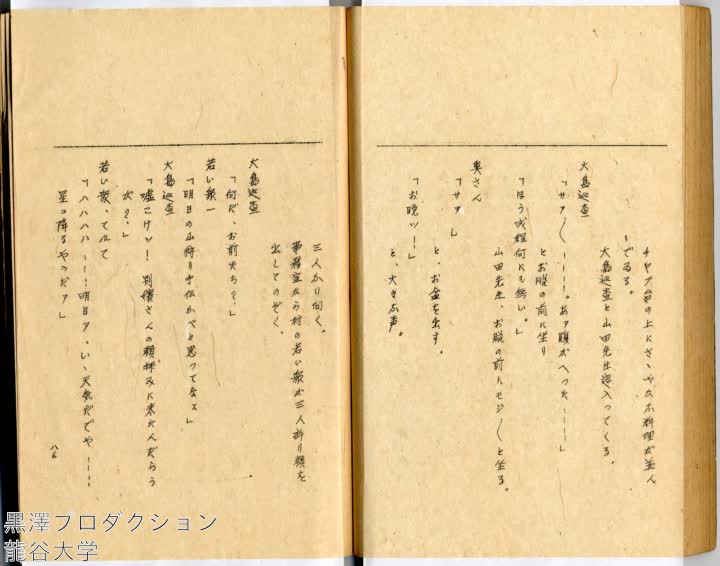 チヤブ台の上にさゝやかな料理が並ん
でゐる。
大島巡査と山田先生這入つてくる。
大島巡査
「サア〱────。あァ腹がへつた────」
とお膳の前に坐り
「ほう成程何にも無い。」
山田先生、お膳の前にモジ〱と坐る。
奥さん
「サァ」
と、お盆を出す。
「お晩ッ──！」
と、大きな声。
三人ふり向く。
事務室から村の若い衆が三人許り顔を
出してのぞく。
大島巡査
「何だ、お前火ち？」
若い衆一
「明日の山狩り手伝かべと思つてなァ」
大島巡査
「嘘こけッ！別嬪さんの顔拝みに来たんだらう
が？」
若い衆、てれて
「ハハハハ───明日ァ、いゝ天気だでや────
星コ降るやうだァ」
八六
黒澤プロダクション
龍谷大学